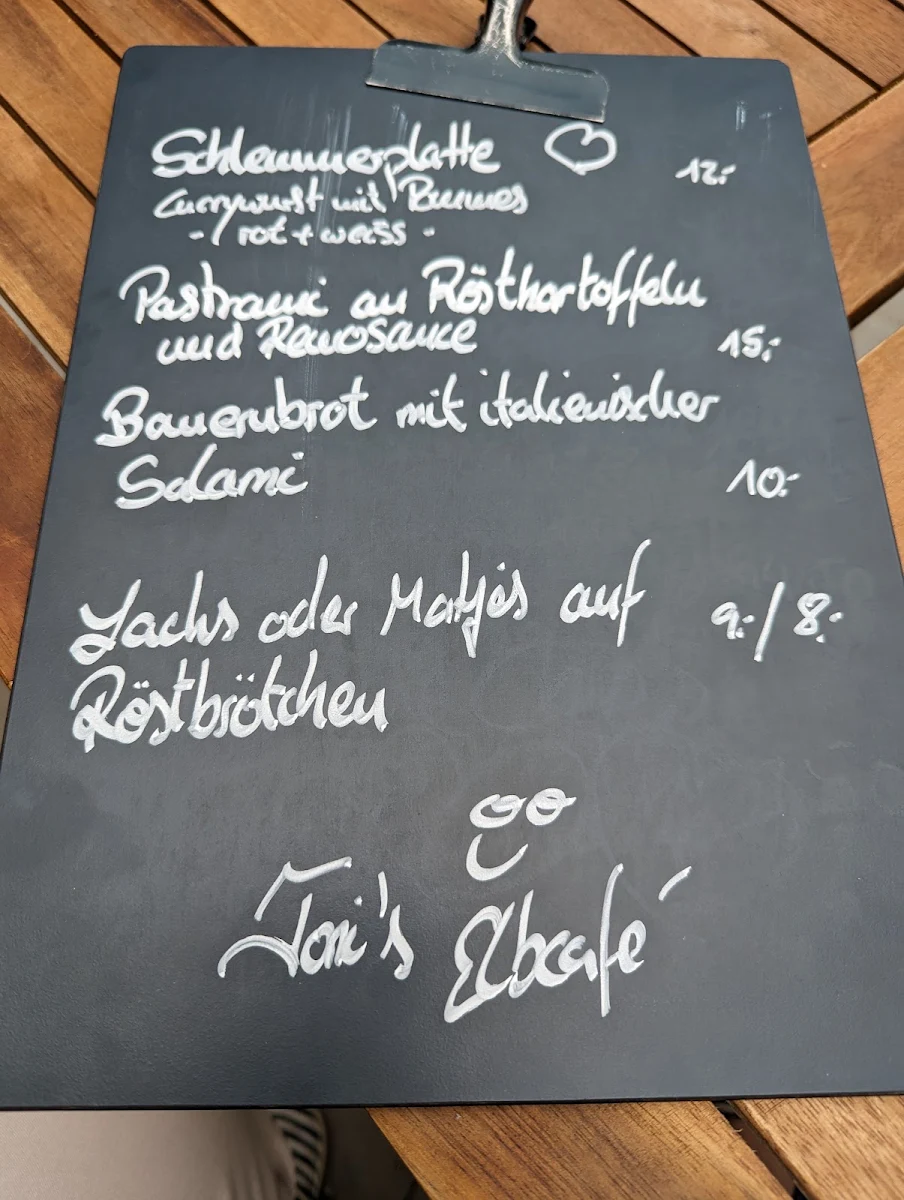 Schlemmerplatte 12.-
Currywurst mit Pummes
- rot + weiss -
Pastrami an Rösthartoffeln
und Remosauce 15.-
Bauernbrot mit italienischer
Salami 10.-
Lachs oder Matjes auf 9.-/8.-
Röstbrötchen
Toni's Elbcafé